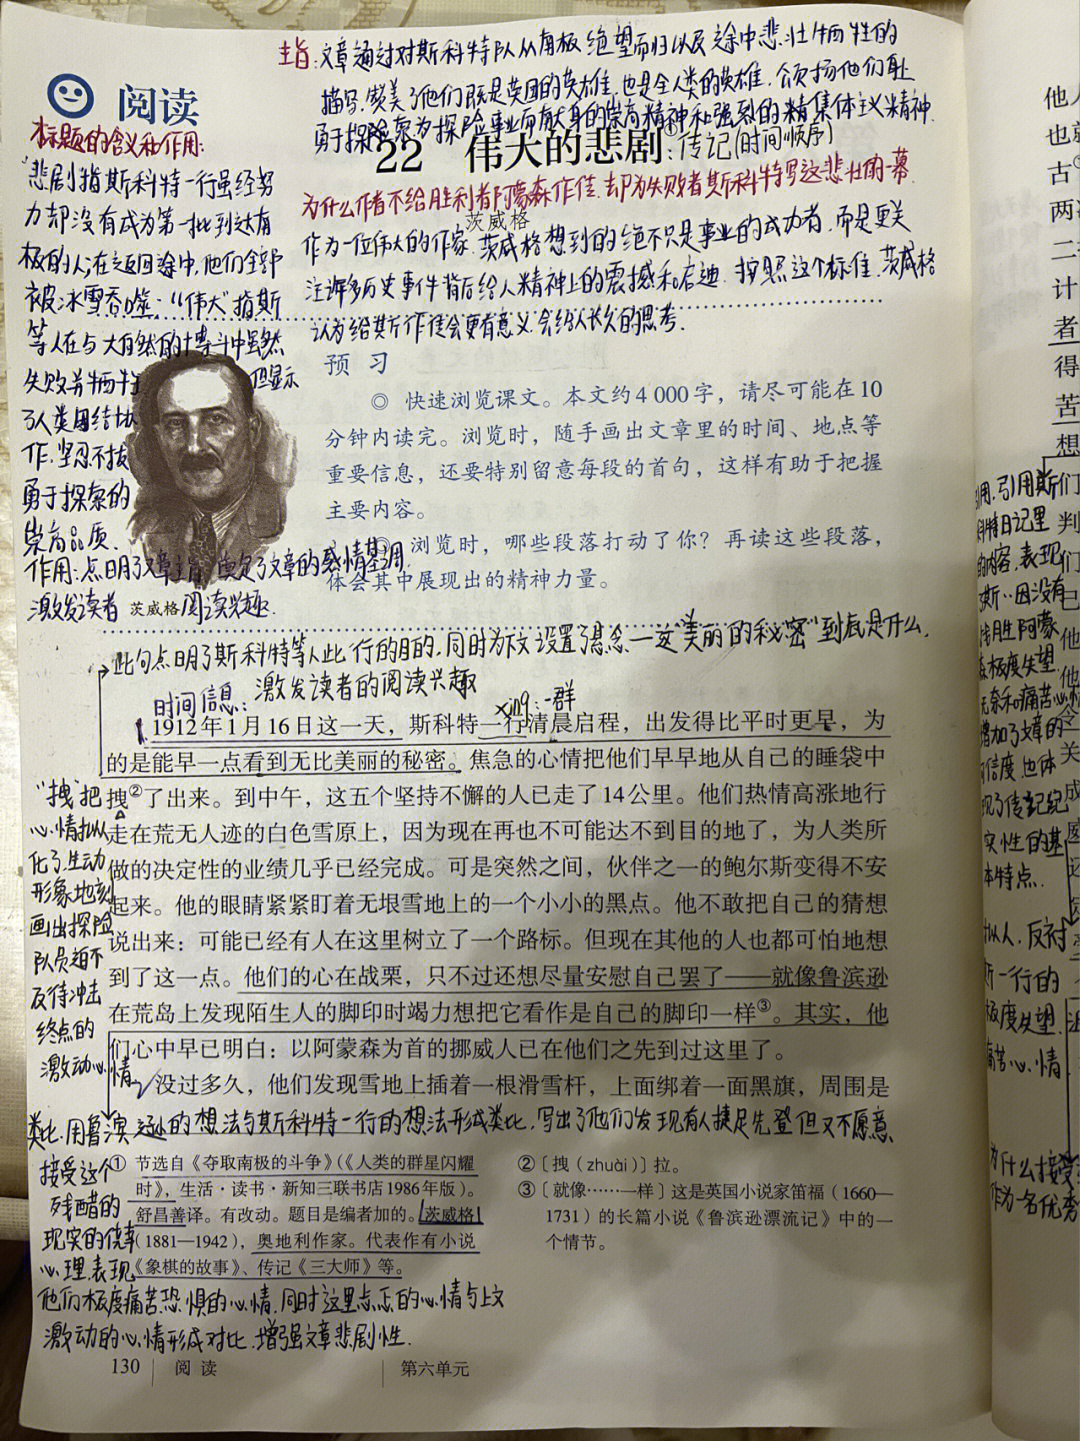 主旨:文章通过对斯科特队从南极绝望而归以及途中悲壮牺牲的
描写,赞美了他们既是英国的英雄,也是全人类的英雄,颂扬他们
勇于探险,为探险事业而献身的崇高精神和强烈的集体主义精神.
阅读
22 伟大的悲剧①:传记(时间顺序)
茨威格
标题的含义和作用:
"悲剧"指斯科特一行虽经努
力却没有成为第一批到达南
极的人;在返回途中,他们全部
被冰雪吞噬;"伟大"指斯
等人在与大自然的博斗中虽然
失败并牺牲 但显示
了人类团结协
作.坚忍不拔
勇于探索的
崇高品质.
作用:点明了文章主旨,奠定了文章的感情基调
激发读者阅读兴趣.
茨威格
为什么作者不给胜利者阿蒙森作传,却为失败者斯科特写这悲壮的一幕
作为一位伟大的作家,茨威格想到的绝不只是事业的成功者,而是更关
注许多历史事件背后给人精神上的震撼和启迪.按照这个标准,茨威格
认为给斯作传会更有意义,会给人长久的思考.
预 习
◎ 快速浏览课文。本文约4 000字,请尽可能在10
分钟内读完。浏览时,随手画出文章里的时间、地点等
重要信息,还要特别留意每段的首句,这样有助于把握
主要内容。
◎ 浏览时,哪些段落打动了你?再读这些段落,
体会其中展现出的精神力量。
此句点明了斯科特等人此行的目的,同时为下文设置了悬念—这"美丽的秘密"到底是什么,
激发读者的阅读兴趣
时间信息:
xíng:一群
1912年1月16日这一天,斯科特一行清晨启程,出发得比平时更早,为
的是能早一点看到无比美丽的秘密。焦急的心情把他们早早地从自己的睡袋中
拽②了出来。到中午,这五个坚持不懈的人已走了14公里。他们热情高涨地行
走在荒无人迹的白色雪原上,因为现在再也不可能达不到目的地了,为人类所
做的决定性的业绩几乎已经完成。可是突然之间,伙伴之一的鲍尔斯变得不安
起来。他的眼睛紧紧盯着无垠雪地上的一个小小的黑点。他不敢把自己的猜想
说出来:可能已经有人在这里树立了一个路标。但现在其他的人也都可怕地想
到了这一点。他们的心在战栗,只不过还想尽量安慰自己罢了——就像鲁滨逊
在荒岛上发现陌生人的脚印时竭力想把它看作是自己的脚印一样③。其实,他
们心中早已明白:以阿蒙森为首的挪威人已在他们之先到过这里了。
没过多久,他们发现雪地上插着一根滑雪杆,上面绑着一面黑旗,周围是
"拽"把
心情拟人
化了.生动
形象地刻
画出探险
队员迫不
及待冲击
终点的
激动心情
类比,用鲁滨逊的想法与斯科特一行的想法形成类比,写出了他们发现有人捷足先登但又不愿意
接受这个
残酷的
现实的
心理.表现
他们极度痛苦恐惧的心情,同时这里忐忑的心情与上文
激动的心情形成对比,增强文章悲剧性.
① 节选自《夺取南极的斗争》(《人类的群星闪耀
时》,生活·读书·新知三联书店1986年版)。
舒昌善译。有改动。题目是编者加的。茨威格
(1881—1942),奥地利作家。代表作有小说
《象棋的故事》、传记《三大师》等。
② 〔拽(zhuài)〕拉。
③ 〔就像……一样〕这是英国小说家笛福(1660—
1731)的长篇小说《鲁滨逊漂流记》中的一
个情节。
130 阅 读 第六单元
他人
也就
古
两
二
计
者
得
苦
想
们
判
们
已
他
他
令
关
成
引用,引用斯
科特日记里
的内容,表现
因没有
战胜阿蒙
森极度失望
无奈和痛苦心情
增加了文章的
可信度,也体
现了传记纪
实性的基
本特点.
拟人,反衬
斯一行的
极度失望
痛苦心情
为什么接受
作为一名优秀